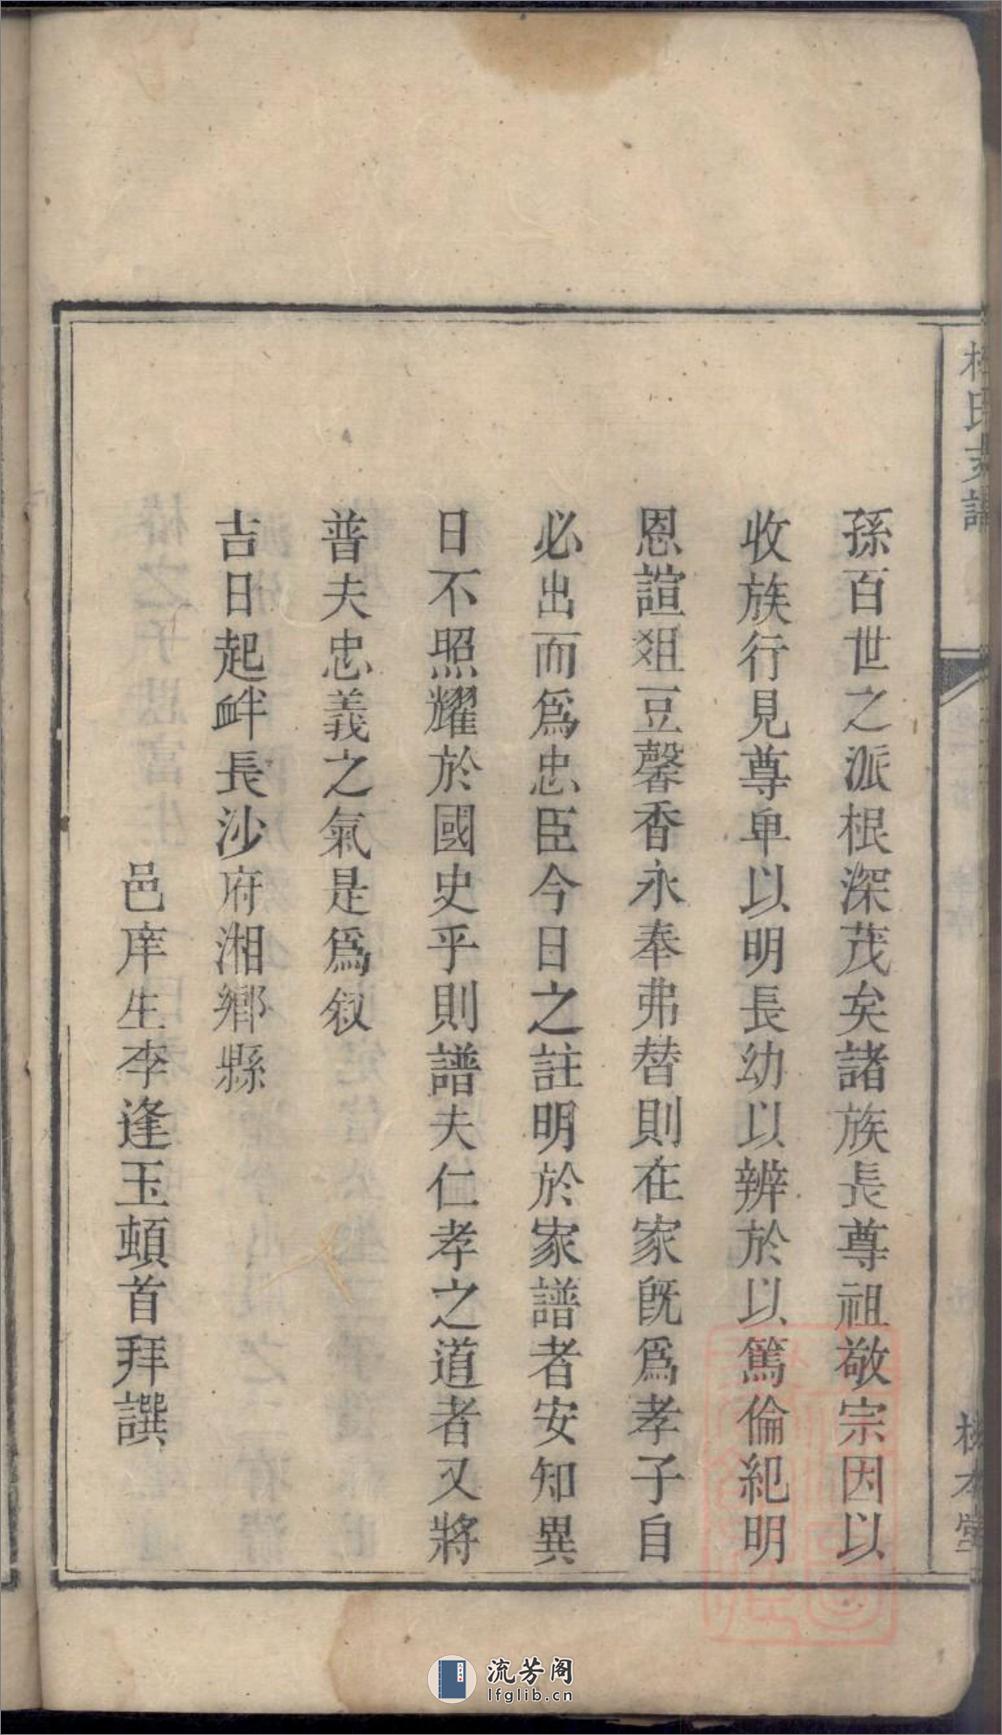 孫百世之派根深茂矣諸族長尊祖敬宗因以
收族行見尊卑以明長幼以辨於以篤倫紀明
恩誼爼豆馨香永奉弗替則在家旣爲孝子自
必出而爲忠臣今日之註明於家譜者安知異
日不照耀於國史乎則譜夫仁孝之道者又將
普夫忠義之氣是爲叙
吉日起衅長沙府湘鄉縣
邑庠生李逢玉頓首拜譔
氏支譜
本堂
流芳阁
lfglib.cn